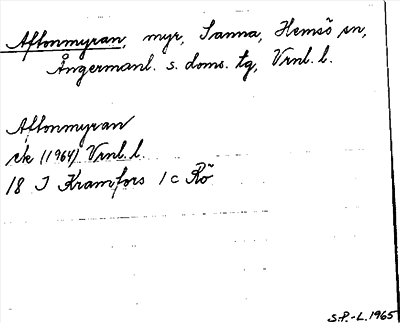 Aftonmyran, myr, Sanna, Hemsö sn,
Ångermanl. s. doms. tg, Vrnl. l.
Aftonmyran
ek (1964) Vrnl. l.
18 J Kramfors 1 c Rö
S.P.-L. 1965